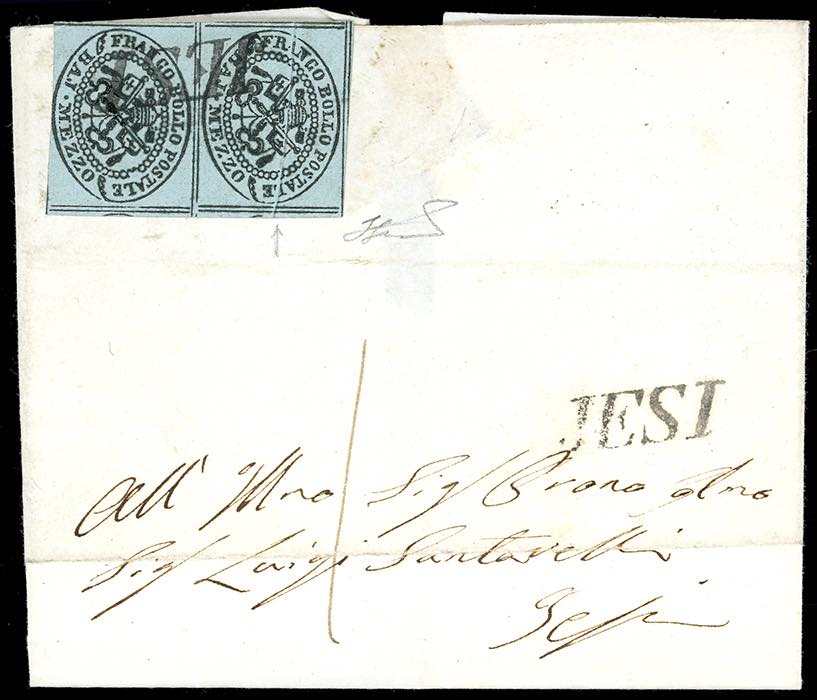 FRANCO BOLLO POSTALE
BAJ. MEZZO
FRANCO BOLLO POSTALE
BAJ. MEZZO
JESI
JESI
All' Illmo Sig Prone Olmo
Sig Luigi Santarelli
Jessi